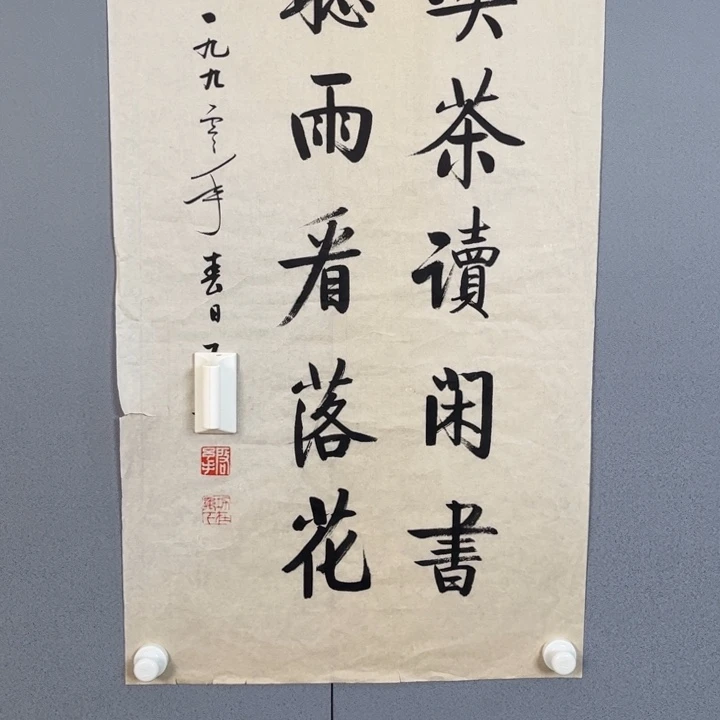 茶讀闲書
聽雨看落花
一九九零年春日